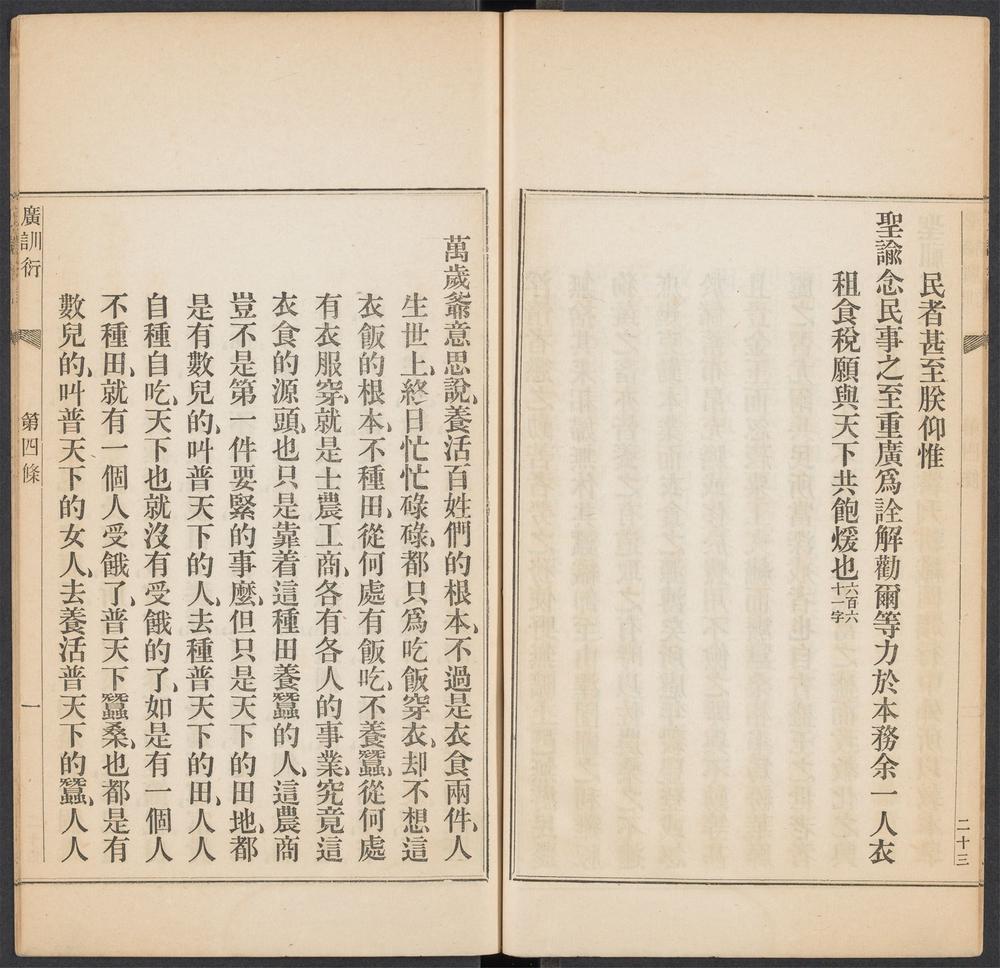 民者甚至朕仰惟
聖諭念民事之至重廣爲詮解勸爾等力於本務余一人衣
租食稅願與天下共飽煖也六百六十一字
二十三
萬歲爺意思說、養活百姓們的根本、不過是衣食兩件、人
生世上、終日忙忙碌碌、都只爲吃飯穿衣、却不想這
衣飯的根本、不種田、從何處有飯吃、不養蠶、從何處
有衣服穿、就是士農工商、各有各人的事業、究竟這
衣食的源頭、也只是靠着這種田養蠶的人、這農商
豈不是第一件要緊的事麼、但只是天下的田地、都
是有數兒的、叫普天下的人、去種普天下的田、人人
自種自吃、天下也就沒有受餓的了、如是有一個人
不種田、就有一個人受餓了、普天下蠶桑、也都是有
數兒的、叫普天下的女人、去養活普天下的蠶、人人
廣訓衍
第四條
一